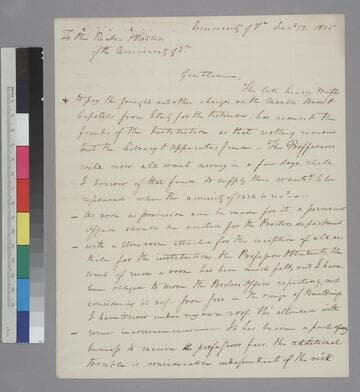 University of Va Decr 12 1825
To the Rector & Visitors
of the University of Va
Gentlemen,
The late heavy drafts
to pay the freight and other charges on the Marble Bases &
Capitels from Italy for the Rotunda has reduced the
funds of the Institution so that nothing remains
but the Library & Apparatus fund — The Professors
will now all want money in a few days, shall
I borrow of that fund to supply their wants? to be
replaced when the annuity of 1826 is
As soon as provision can be made for it, a permanent
office should be erected for the Proctors department
with a store room attached for the reception of all ar-
ticles for the institution the Professors & Students, the
want of such a room has been much felt, and I have
been obliged to move the Proctors Office repeatedly, not
considering it safe from fire in the range of buildings
I have it now under my own roof tho attended with
some inconvenience — It has become a part of my
business to receive the professors fees, the additional
trouble is considerable independent of the risk